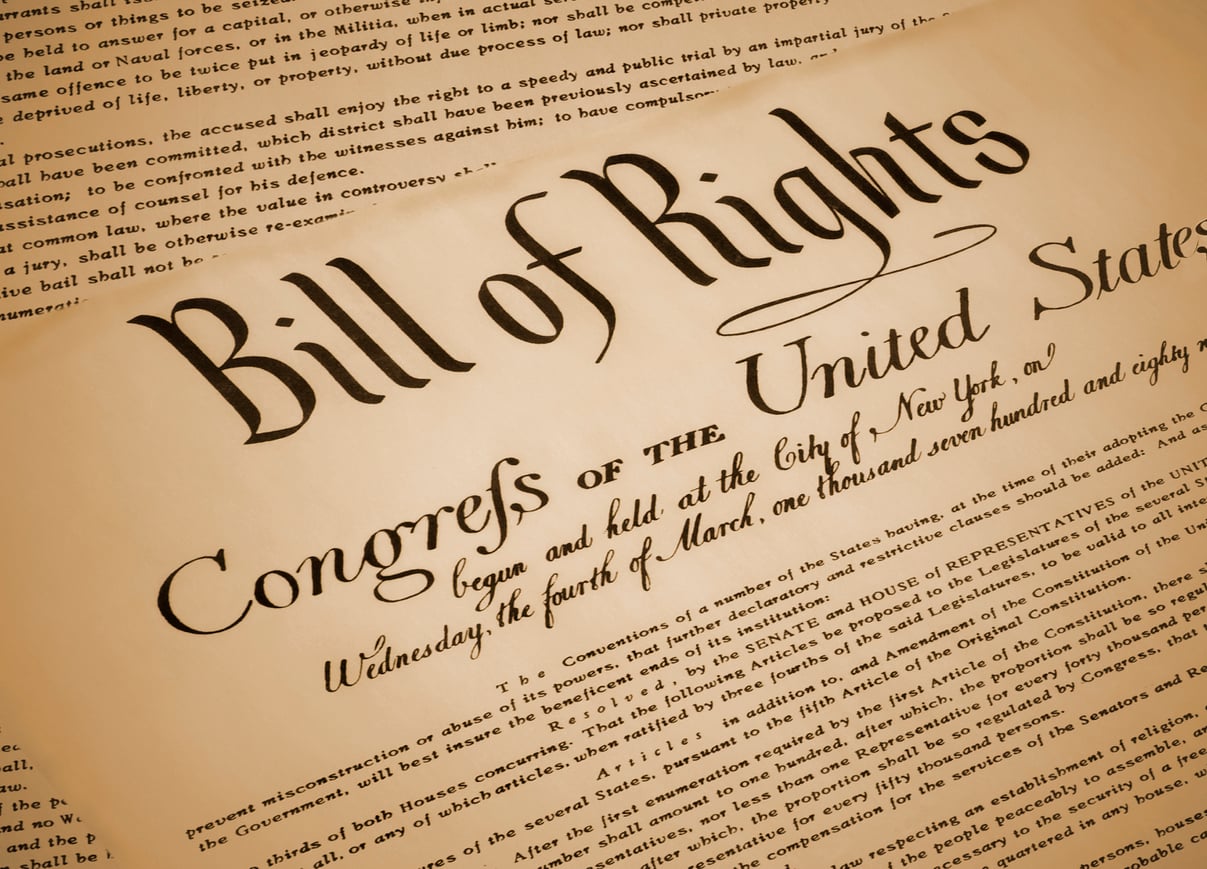 arrants shall
persons or things to be seized
be held to answer for a capital, or otherwise
the land or Naval forces, or in the Militia, when in actual
same offence to be twice put in jeopardy of life or limb; nor shall be
deprived of life, liberty, or property, without due process of law; nor shall private property
al prosecutions, the accused shall enjoy the right to a speedy and public trial by an impartial jury of the
hall have been committed, which district shall have been previously ascertained by law,
usation; to be confronted with the witnesses against him; to have compulsor
assistance of counsel for his defence.
at common law, where the value in controversy
a jury, shall be otherwise re-exami
ive bail shall not be
numerati
Bill of Rights
Congreſs OF THE United States
begun and held at the City of New York, on
Wednesday, the fourth of March, one thousand seven hundred and eighty
The Conventions of a number of the States having, at the time of their adopting the
prevent misconstruction or abuse of its powers, that further declaratory and restrictive clauses should be added: And as
the Government, will best insure the beneficent ends of its institution:
Resolved, by the SENATE and HOUSE of REPRESENTATIVES of the UNIT
thirds of both Houses concurring. That the following Articles be proposed to the Legislatures of the several
all, or any of which articles, when ratified by three fourths of the said Legislatures, to be valid to all
Articles in addition to, and Amendment of the Constitution of the
ures of the several States, pursuant to the fifth Article of the Original Constitution.
After the first enumeration required by the first Article of the Constitution, there
umber shall amount to one hundred, after which, the proportion shall be so
sentatives, nor less than one Representative for every forty thousand
after which, the proportion shall be so regulated by Congress, that
resentative for every fifty thousand persons.
the compensation for the services of the Senators and
law respecting an establishment of religion,
of the people peaceably to assemble,
cessary to the security of a
quartered in any house,
persons,
all,
aw.
the
nd no
and the p
shall be